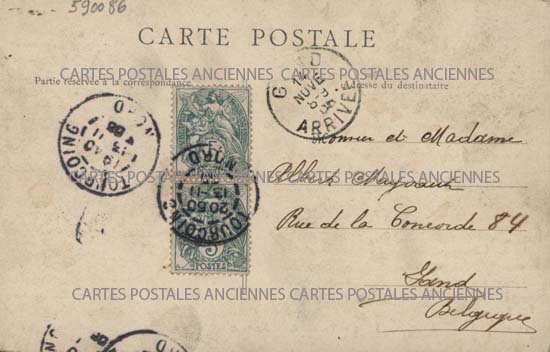 590086
CARTE POSTALE
Partie réservée à la correspondance
Adresse du destinataire
CARTES POSTALES ANCIENNES CARTES POSTALES ANCIENNES
TOURCOING
NORD
GAND
NOVE
ARRIVÉE
TOURCOING
NORD
20 50
13-11
POSTES
Monsieur et Madame
CARTES POSTALES ANCIENNES CARTES POSTALES ANCIENNES
Albert
Rue de la Concorde 84
Gand
CARTES POSTALES ANCIENNES CARTES POSTALES ANCIENNES
Belgique